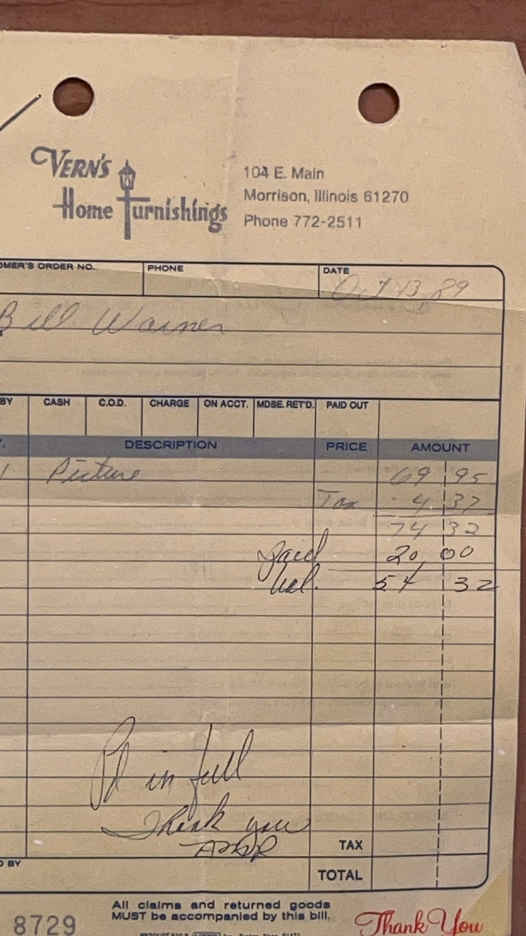 VERN'S
Home Furnishings
104 E. Main
Morrison, Illinois 61270
Phone 772-2511
OMER'S ORDER NO. PHONE DATE
Oct 13 89
Bill Warner
BY CASH C.O.D. CHARGE ON ACCT. MDSE. RET'D. PAID OUT
DESCRIPTION PRICE AMOUNT
1 Picture 69 95
Tax 4 37
74 32
Paid 20 00
bal. 54 32
Pd in full
Thank you
TAX
TOTAL
D BY
All claims and returned goods
MUST be accompanied by this bill.
8729
Thank You